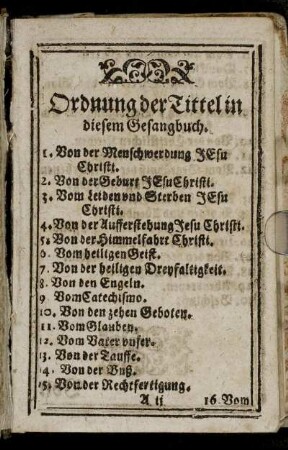 Ordnung der Tittel in
diesem Gesangbuch.
1. Von der Menschwerdung JEsu
Christi.
2. Von der Geburt JEsu Christi.
3. Vom Leiden und Sterben JEsu
Christi.
4. Von der Aufferstehung Jesu Christi.
5. Von der Himmelfahrt Christi.
6. Vom heiligen Geist.
7. Von der heiligen Dreyfaltigkeit.
8. Von den Engeln.
9 Vom Catechismo.
10. Von den zehen Geboten.
11. Vom Glauben.
12. Vom Vater vnser.
13. Von der Tauffe.
14. Von der Buß.
15. Von der Rechtfertigung.
A ii 16 Vom